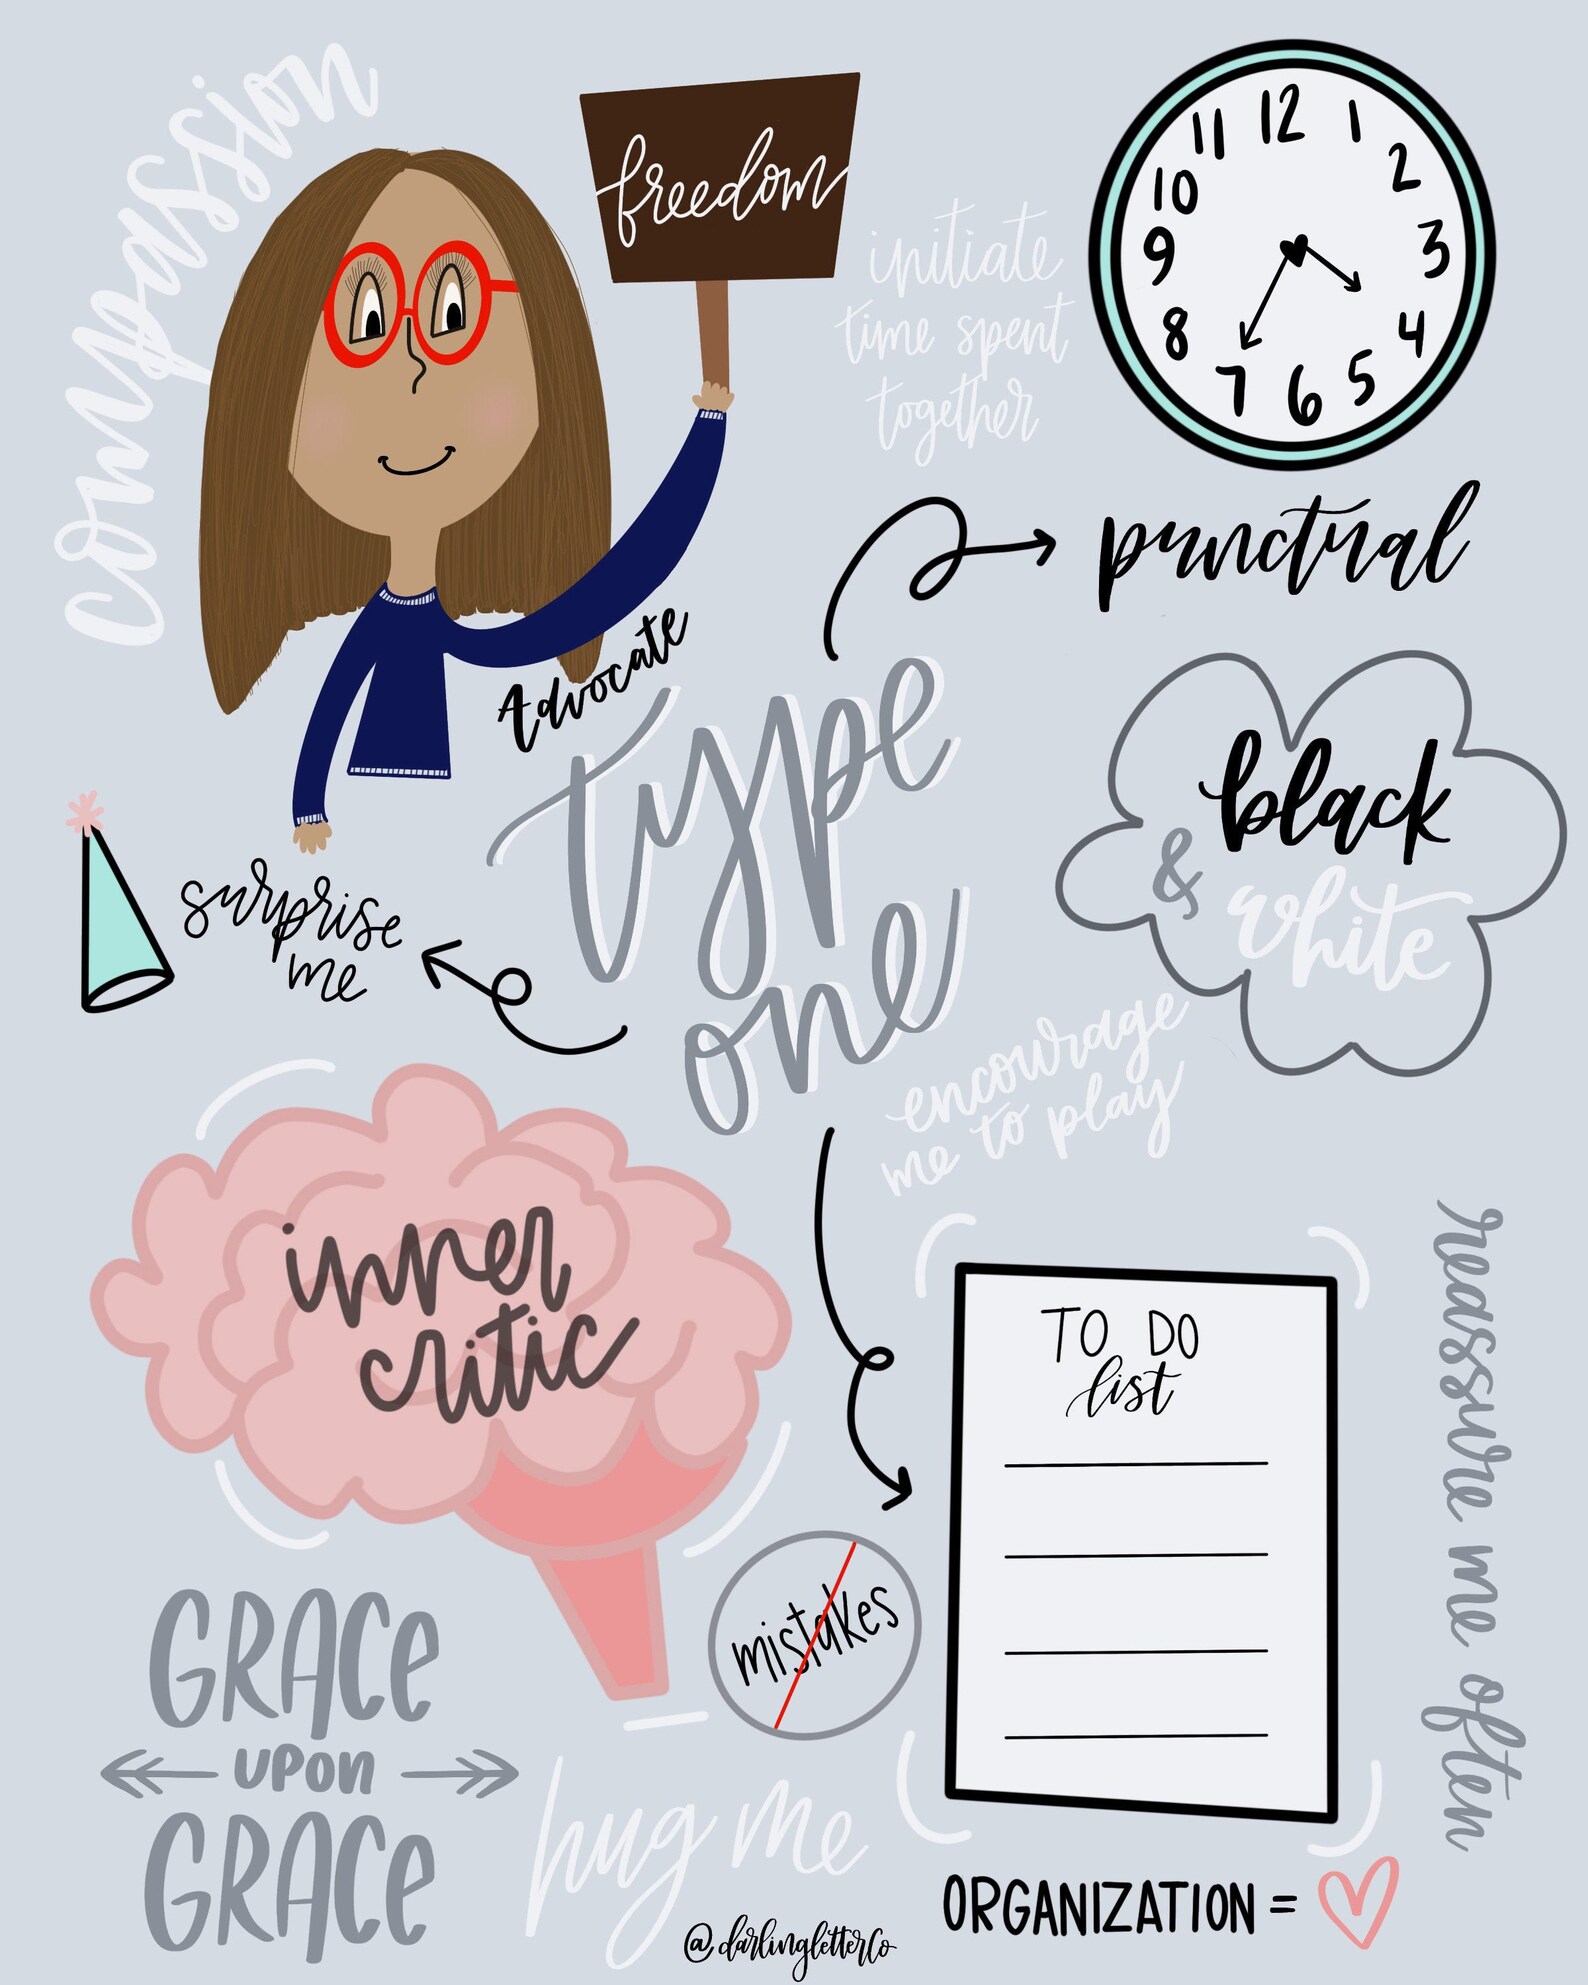 compassion
freedom
initiate
time spent
together
12
1
2
3
4
5
6
7
8
9
10
11
punctual
Advocate
type
one
black
&
white
surprise
me
encourage
me to play
inner
critic
TO DO
list
reassure me often
mistakes
GRACE
UPON
GRACE
hug me
ORGANIZATION =
@darlingletterco